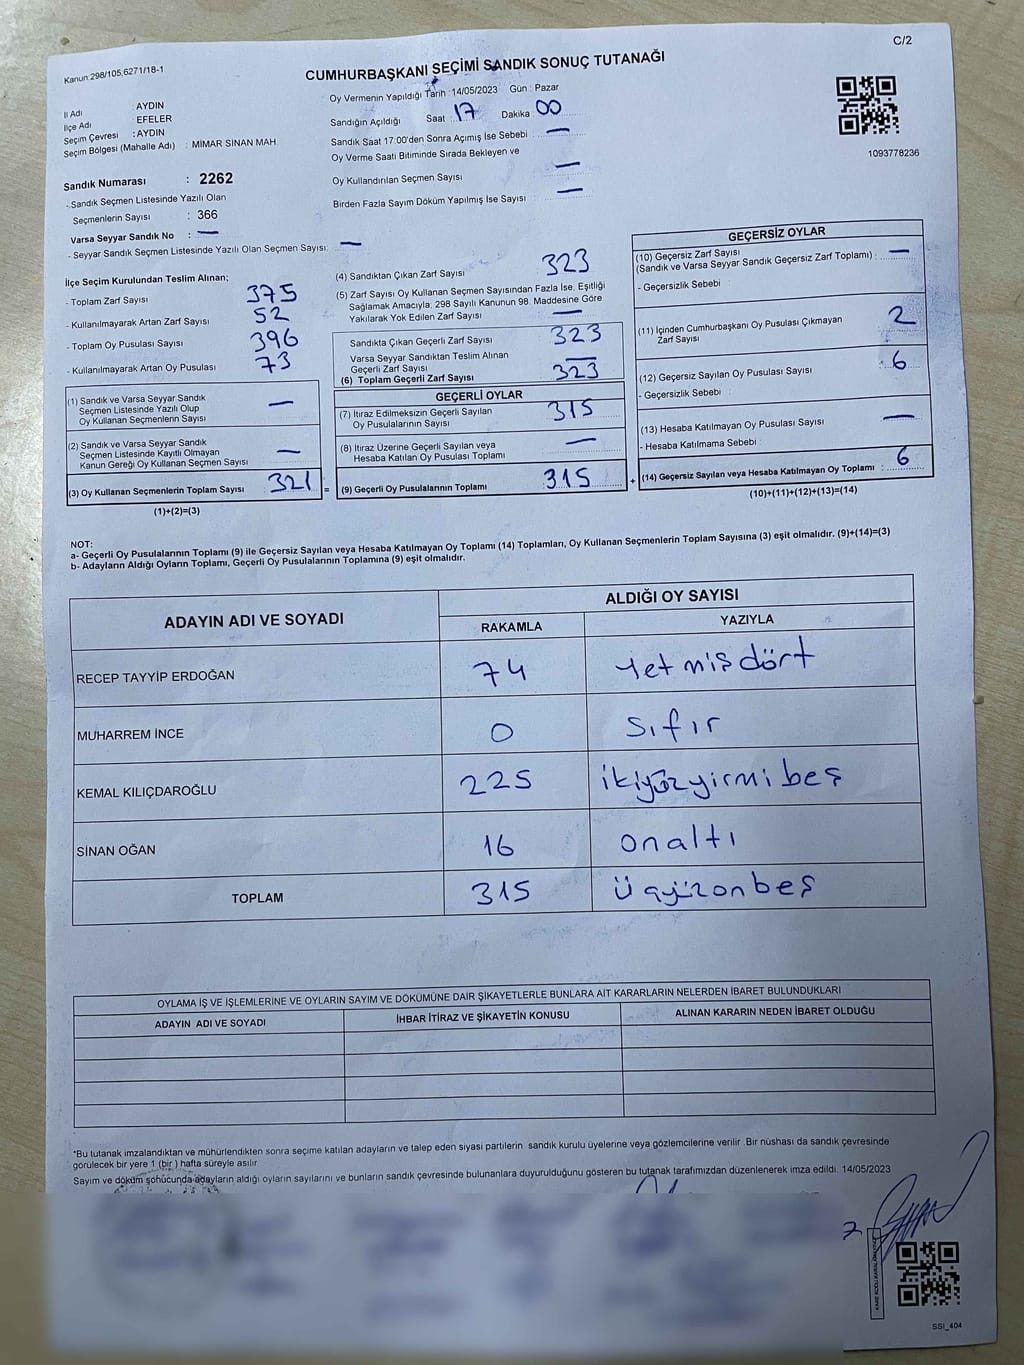 C/2
Kanun:298/105,6271/18-1
CUMHURBAŞKANI SEÇİMİ SANDIK SONUÇ TUTANAĞI
İl Adı : AYDIN
İlçe Adı : EFELER
Seçim Çevresi : AYDIN
Seçim Bölgesi (Mahalle Adı) : MİMAR SİNAN MAH.
Oy Vermenin Yapıldığı Tarih :14/05/2023 Gün : Pazar
Sandığın Açıldığı Saat : 17 Dakika : 00
Sandık Saat 17:00'den Sonra Açılmış İse Sebebi : —
Oy Verme Saati Bitiminde Sırada Bekleyen ve
Oy Kullandırılan Seçmen Sayısı : —
Birden Fazla Sayım Döküm Yapılmış İse Sayısı : —
1093778236
Sandık Numarası : 2262
- Sandık Seçmen Listesinde Yazılı Olan
Seçmenlerin Sayısı : 366
Varsa Seyyar Sandık No : —
- Seyyar Sandık Seçmen Listesinde Yazılı Olan Seçmen Sayısı: —
İlçe Seçim Kurulundan Teslim Alınan;
- Toplam Zarf Sayısı : 375
- Kullanılmayarak Artan Zarf Sayısı : 52
- Toplam Oy Pusulası Sayısı : 396
- Kullanılmayarak Artan Oy Pusulası : 73
(1) Sandık ve Varsa Seyyar Sandık
Seçmen Listesinde Yazılı Olup
Oy Kullanan Seçmenlerin Sayısı : —
(2) Sandık ve Varsa Seyyar Sandık
Seçmen Listesinde Kayıtlı Olmayan
Kanun Gereği Oy Kullanan Seçmen Sayısı : —
(3) Oy Kullanan Seçmenlerin Toplam Sayısı : 321 =
(1)+(2)=(3)
(4) Sandıktan Çıkan Zarf Sayısı : 323
(5) Zarf Sayısı Oy Kullanan Seçmen Sayısından Fazla İse, Eşitliği
Sağlamak Amacıyla, 298 Sayılı Kanunun 98. Maddesine Göre
Yakılarak Yok Edilen Zarf Sayısı : —
Sandıkta Çıkan Geçerli Zarf Sayısı : 323
Varsa Seyyar Sandıktan Teslim Alınan
Geçerli Zarf Sayısı : —
(6) Toplam Geçerli Zarf Sayısı : 323
GEÇERLİ OYLAR
(7) İtiraz Edilmeksizin Geçerli Sayılan
Oy Pusulasının Sayısı : 315
(8) İtiraz Üzerine Geçerli Sayılan veya
Hesaba Katılan Oy Pusulası Toplamı : —
(9) Geçerli Oy Pusulalarının Toplamı : 315 +
GEÇERSİZ OYLAR
(10) Geçersiz Zarf Sayısı
(Sandık ve Varsa Seyyar Sandık Geçersiz Zarf Toplamı) : —
- Geçersizlik Sebebi :
(11) İçinden Cumhurbaşkanı Oy Pusulası Çıkmayan
Zarf Sayısı : 2
(12) Geçersiz Sayılan Oy Pusulası Sayısı : 6
- Geçersizlik Sebebi :
(13) Hesaba Katılmayan Oy Pusulası Sayısı : —
- Hesaba Katılmama Sebebi :
(14) Geçersiz Sayılan veya Hesaba Katılmayan Oy Toplamı : 6
(10)+(11)+(12)+(13)=(14)
NOT:
a- Geçerli Oy Pusulalarının Toplamı (9) ile Geçersiz Sayılan veya Hesaba Katılmayan Oy Toplamı (14) Toplamları, Oy Kullanan Seçmenlerin Toplam Sayısına (3) eşit olmalıdır. (9)+(14)=(3)
b- Adayların Aldığı Oyların Toplamı, Geçerli Oy Pusulalarının Toplamına (9) eşit olmalıdır.
ADAYIN ADI VE SOYADI ALDIĞI OY SAYISI
RAKAMLA YAZIYLA
RECEP TAYYİP ERDOĞAN 74 Yetmişdört
MUHARREM İNCE 0 Sıfır
KEMAL KILIÇDAROĞLU 225 ikiyüzyirmibeş
SİNAN OĞAN 16 onaltı
TOPLAM 315 Üçyüzonbeş
OYLAMA İŞ VE İŞLEMLERİNE VE OYLARIN SAYIM VE DÖKÜMÜNE DAİR ŞİKAYETLERLE BUNLARA AİT KARARLARIN NELERDEN İBARET BULUNDUKLARI
ADAYIN ADI VE SOYADI İHBAR İTİRAZ VE ŞİKAYETİN KONUSU ALINAN KARARIN NEDEN İBARET OLDUĞU
*Bu tutanak imzalandıktan ve mühürlendikten sonra seçime katılan adayların ve talep eden siyasi partilerin sandık kurulu üyelerine veya gözlemcilerine verilir. Bir nüshası da sandık çevresinde
görülecek bir yere 1 (bir) hafta süreyle asılır.
Sayım ve döküm sonucunda adayların aldığı oyların sayılarını ve bunların sandık çevresinde bulunanlara duyurulduğunu gösteren bu tutanak tarafımızdan düzenlenerek imza edildi. 14/05/2023
SSI_404